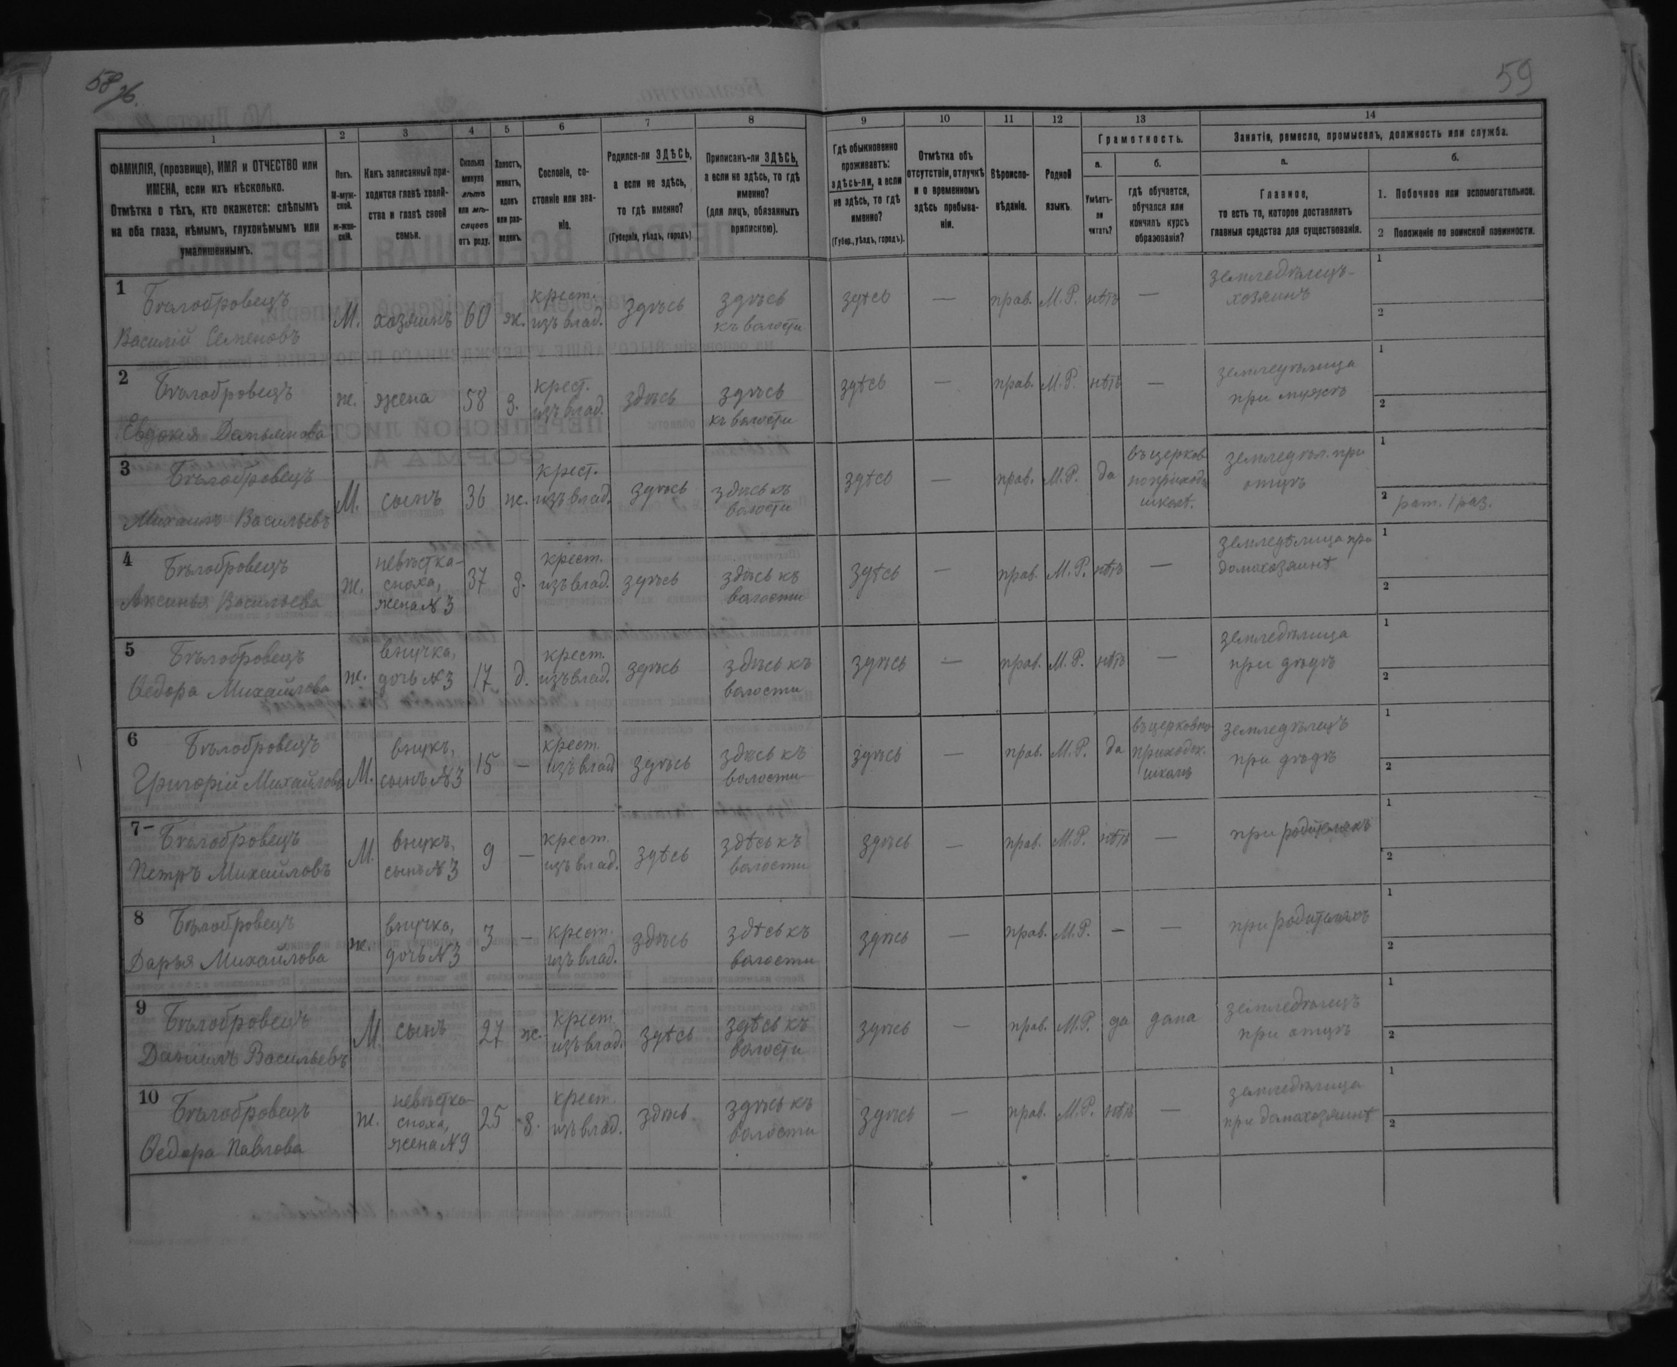 58 об.
59
1
2
3
4
5
6
7
8
9
10
11
12
13
14
ФАМИЛІЯ, (прозвище), ИМЯ и ОТЧЕСТВО или
ИМЕНА, если ихъ нѣсколько.
Отмѣтка о тѣхъ, кто окажется: слѣпымъ
на оба глаза, нѣмымъ, глухонѣмымъ или
умалишеннымъ.
Полъ.
М-муж-
ской.
ж-жен-
скій.
Какъ записанный при-
ходится главѣ хозяй-
ства и главѣ своей
семьи.
Сколько
минуло
лѣтъ
или мѣ-
сяцевъ
отъ роду.
Холостъ,
женатъ,
вдовъ
или раз-
веденъ.
Сословіе, со-
стояніе или зва-
ніе.
Родился-ли ЗДѢСЬ,
а если не здѣсь,
то гдѣ именно?
(Губернія, уѣздъ, городъ).
Приписанъ-ли ЗДѢСЬ,
а если не здѣсь, то гдѣ
именно?
(для лицъ, обязанныхъ
припискою).
Гдѣ обыкновенно
проживаетъ:
здѣсь-ли, а если
не здѣсь, то гдѣ
именно?
(Губер., уѣздъ, городъ).
Отмѣтка объ
отсутствіи, отлучкѣ
и о временномъ
здѣсь пребыва-
ніи.
Вѣроиспо-
вѣданіе.
Родной
языкъ.
Грамотность.
а.
Умѣетъ-
ли
читать?
б.
гдѣ обучается,
обучался или
кончилъ курсъ
образованія?
Занятія, ремесло, промыселъ, должность или служба.
а.
Главное,
то есть то, которое доставляетъ
главныя средства для существованія.
б.
1. Побочное или вспомогательное.
2 Положеніе по воинской повинности.
1
Бѣлобровецъ
Василій Семеновъ
М.
хозяинъ
60
ж.
крест.
изъ влад.
здѣсь
здѣсь
къ волости
здѣсь
—
прав.
М.Р.
нѣтъ
—
земледѣлецъ-
хозяинъ
1
2
2
Бѣлобровецъ
Евдокія Дапьянова
ж.
жена
58
з.
крест.
изъ влад.
здѣсь
здѣсь
къ волости
здѣсь
—
прав.
М.Р.
нѣтъ
—
земледѣлица
при мужѣ
1
2
3
Бѣлобровецъ
Михаилъ Васильевъ
М.
сынъ
36
ж.
крест.
изъ влад.
здѣсь
здѣсь къ
волости
здѣсь
—
прав.
М.Р.
да
въ церков
школѣ.
земледѣл. при
отцѣ
1
2 рат. 1 раз.
4
Бѣлобровецъ
Аксинья Васильева
ж.
невѣстка-
сноха,
жена №3
37
з.
крест.
изъ влад.
здѣсь
здѣсь къ
волости
здѣсь
—
прав.
М.Р.
нѣтъ
—
земледѣлица при
домохозяинѣ
1
2
5
Бѣлобровецъ
Ѳедора Михайлова
ж.
внучка,
дочь №3
17
д.
крест.
изъ влад.
здѣсь
здѣсь къ
волости
здѣсь
—
прав.
М.Р.
нѣтъ
—
земледѣлица
при дѣдѣ
1
2
6
Бѣлобровецъ
Григорій Михайловъ
М.
внукъ,
сынъ №3
15
—
крест.
изъ влад
здѣсь
здѣсь къ
волости
здѣсь
—
прав.
М.Р.
да
въ церковно-
приходск.
школѣ
земледѣлецъ
при дѣдѣ
1
2
7
Бѣлобровецъ
Петръ Михайловъ
М.
внукъ,
сынъ №3
9
—
крест.
изъ влад.
здѣсь
здѣсь къ
волости
здѣсь
—
прав.
М.Р.
нѣтъ
—
при родителяхъ
1
2
8
Бѣлобровецъ
Дарья Михайлова
ж.
внучка,
дочь №3
3
—
крест.
изъ влад.
здѣсь
здѣсь къ
волости
здѣсь
—
прав.
М.Р.
—
—
при родителяхъ
1
2
9
Бѣлобровецъ
Даніилъ Васильевъ
М.
сынъ
27
ж.
крест.
изъ влад.
здѣсь
здѣсь къ
волости
здѣсь
—
прав.
М.Р.
да
дома
земледѣлецъ
при отцѣ
1
2
10
Бѣлобровецъ
Ѳедора Павлова
ж.
невѣстка-
сноха,
жена №9
25
з.
крест.
изъ влад.
здѣсь
здѣсь къ
волости
здѣсь
—
прав.
М.Р.
нѣтъ
—
земледѣлица
при домохозяинѣ
1
2